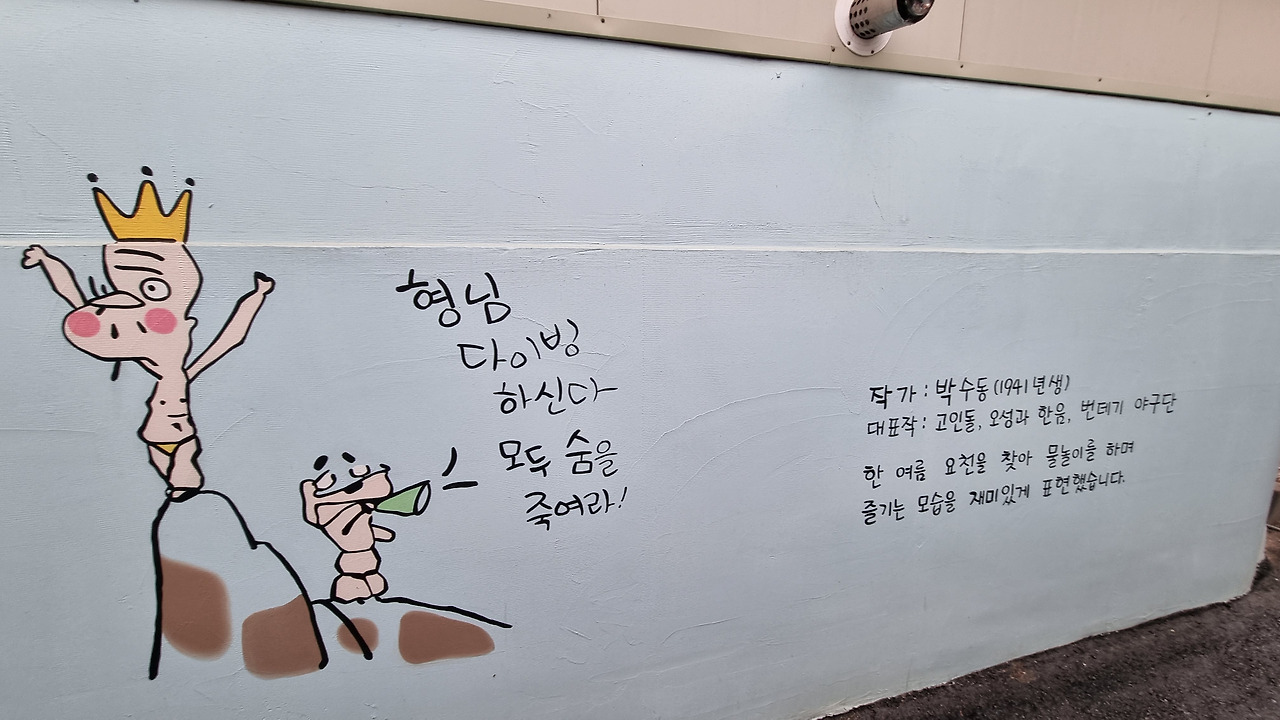 형님
다이빙
하신다
모두 숨을
죽여라!
작가 : 박수동 (1941년생)
대표작 : 고인돌, 오성과 한음, 번데기 야구단
한 여름 요천을 찾아 물놀이를 하며
즐기는 모습을 재미있게 표현했습니다.